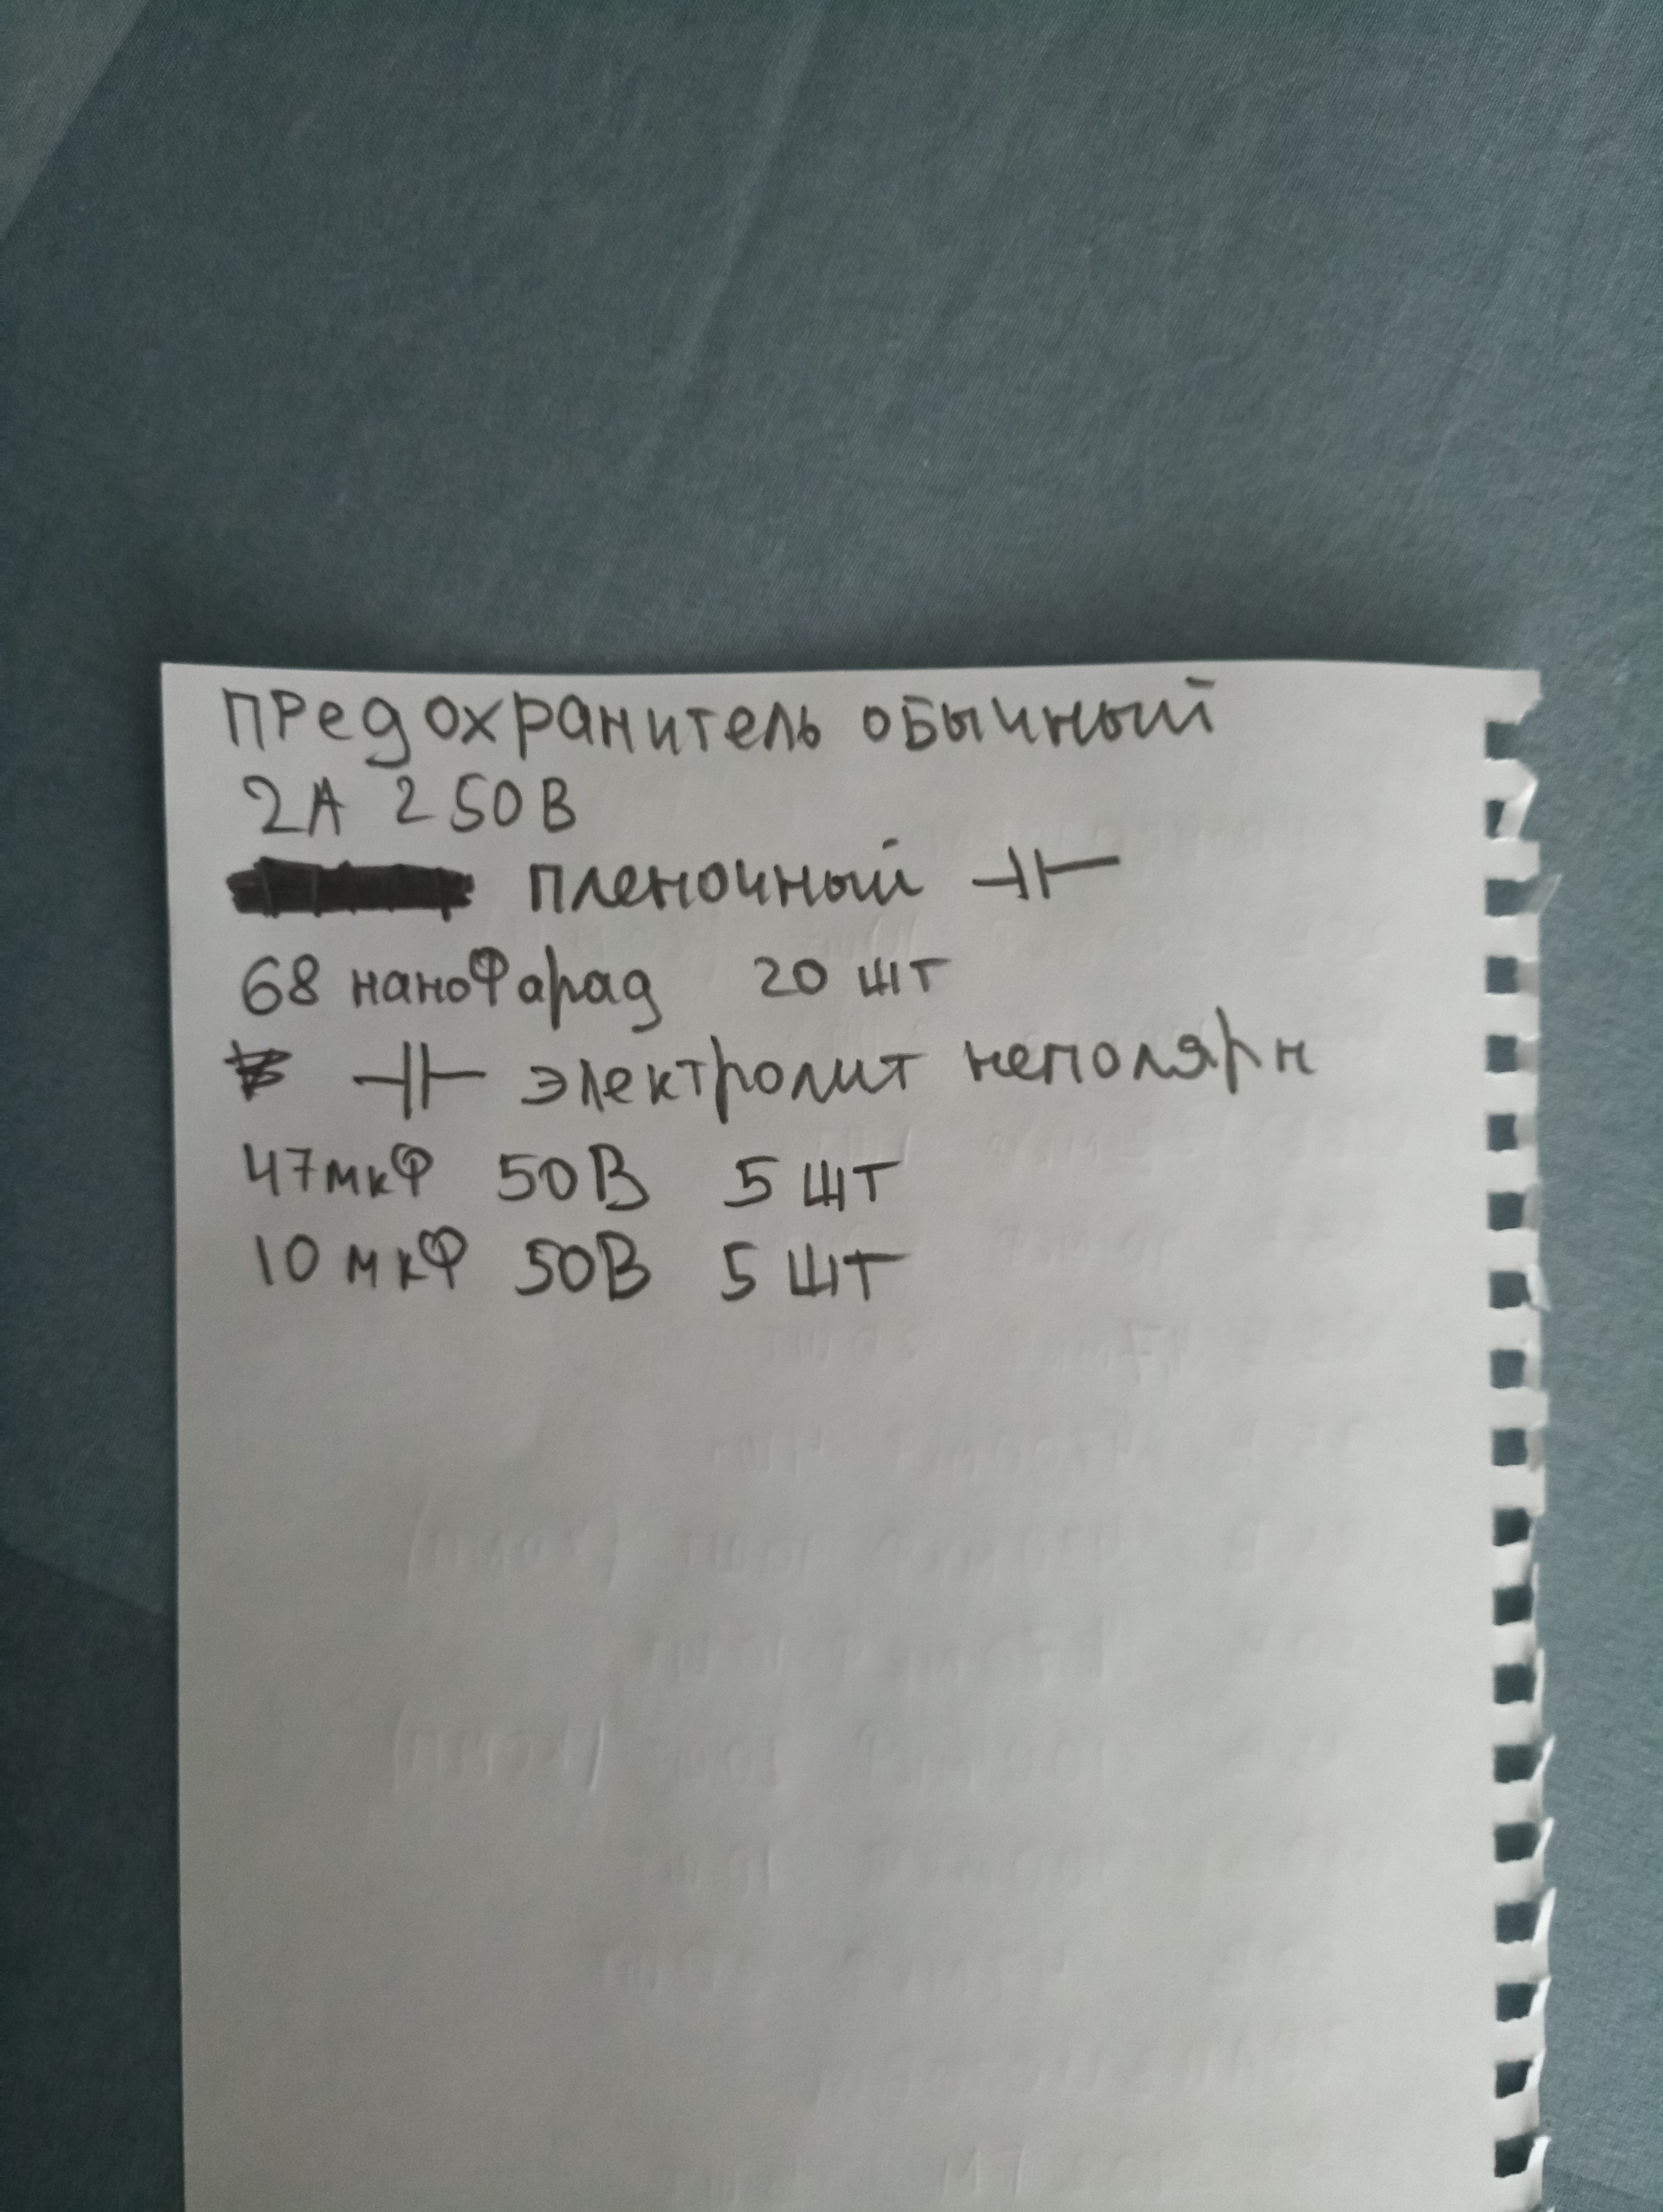 Предохранитель обычный
2А 250В
пленочный
68 нанофарад 20 шт
электролит неполярн
47мкФ 50В 5 шт
10 мкФ 50В 5 шт